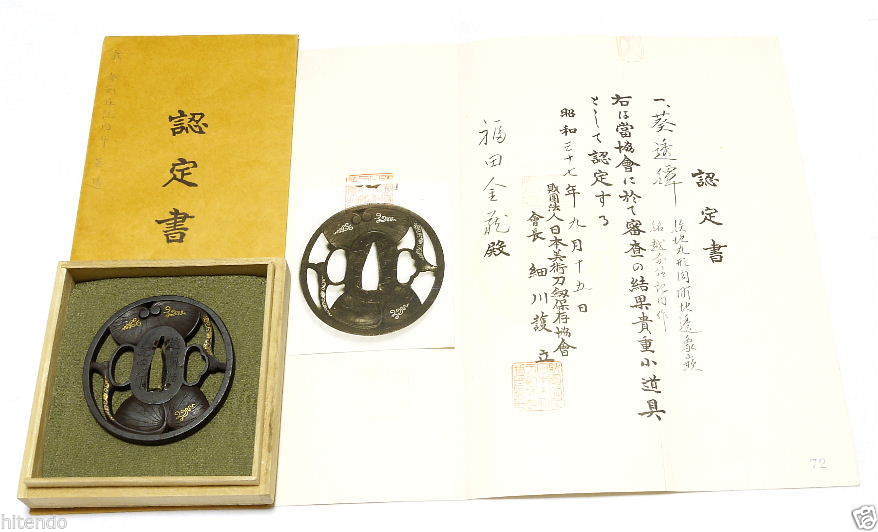 認定書
認定書
一、葵透鐔
鉄地丸形肉彫地透象嵌
右は當協會に於て審査の結果貴重小道具
として認定する
昭和三十七年九月十五日
財團法人日本美術刀劍保存協會
會長 細川護立
殿
72
hitendo